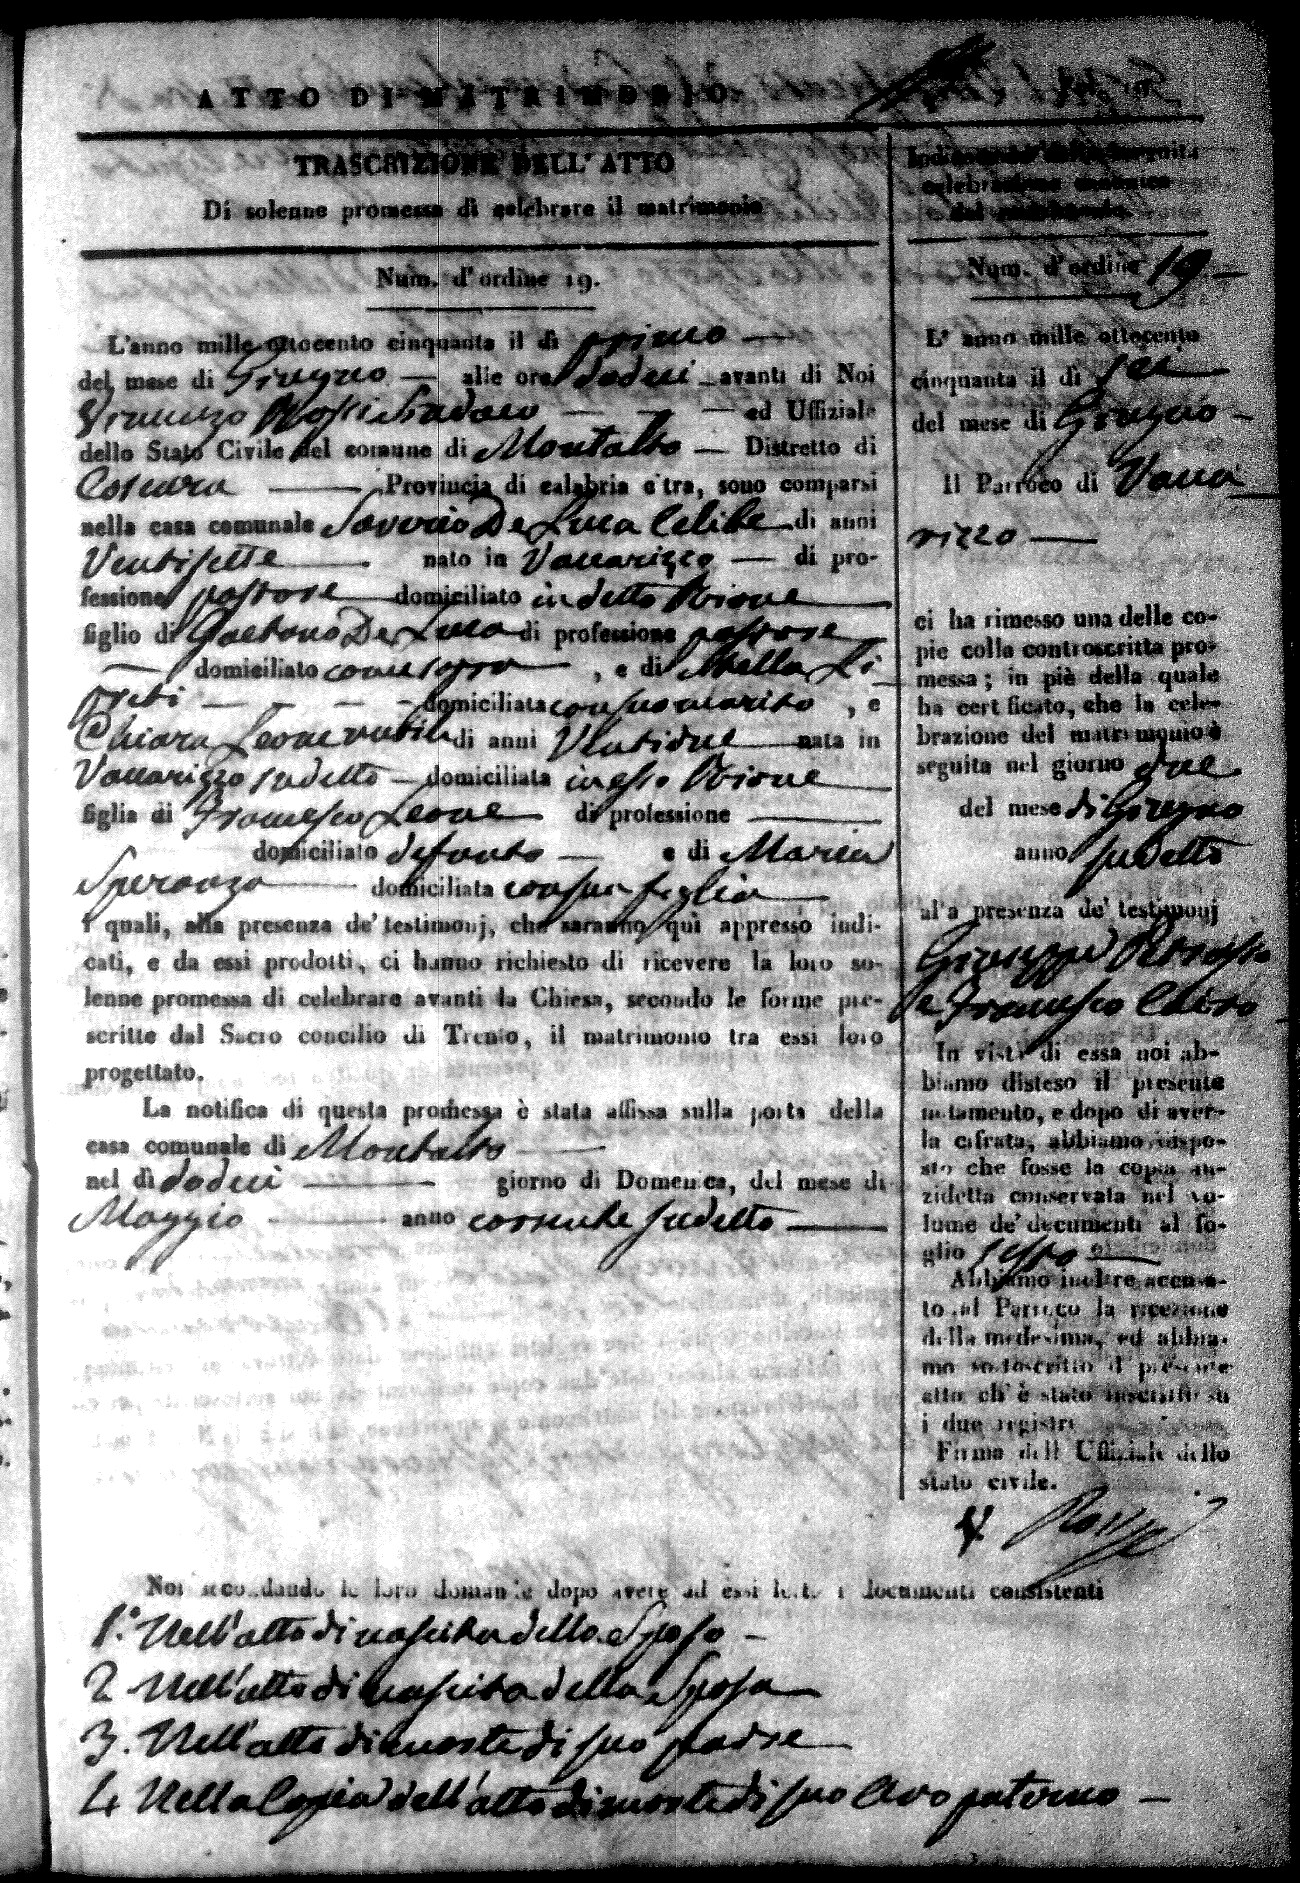 ATTO DI MATRIMONIO
TRASCRIZIONE DELL' ATTO
Di solenne promessa di celebrare il matrimonio
Num. d'ordine 19.
L'anno mille ottocento cinquanta il dì primo
del mese di Giugno alle ore dodeci avanti di Noi
Francesco Rossi Sindaco ed Uffiziale
dello Stato Civile del comune di Montalto Distretto di
Cosenza Provincia di calabria citra, sono comparsi
nella casa comunale Saverio De Luca Celibe di anni
Ventisette nato in Vaccarizzo di pro-
fessione pastore domiciliato in detto Rione
figlio di Gaetano De Luca di professione pastore
domiciliato come sopra, e di Stella Li
domiciliata con suo marito, e
Chiara Leone nubile di anni Ventidue nata in
Vaccarizzo sudetto domiciliata in esso Rione
figlia di Francesco Leone di professione
domiciliato defunto e di Maria
Speranza domiciliata con sua figlia
i quali, alla presenza de' testimonj, che saranno qui appresso indi-
cati, e da essi prodotti, ci hanno richiesto di ricevere la loro so-
lenne promessa di celebrare avanti la Chiesa, secondo le forme pre-
scritte dal Sacro concilio di Trento, il matrimonio tra essi loro
progettato.
La notifica di questa promessa è stata affissa sulla porta della
casa comunale di Montalto
nel dì dodeci giorno di Domenica, del mese di
Maggio anno corrente sudetto
Num. d'ordine 19
L' anno mille ottocento
cinquanta il dì sei
del mese di Giugno
Il Parroco di Vacca
rizzo
ci ha rimesso una delle co-
pie colla controscritta pro-
messa; in piè della quale
ha certificato, che la cele-
brazione del matrimonio è
seguita nel giorno due
del mese di Giugno
anno sudetto
alla presenza de' testimonj
Giuseppe
e Francesco
In vista di essa noi ab-
biamo disteso il presente
notamento, e dopo di aver-
la cifrata, abbiamo dispo-
sto che fosse la copia an-
zidetta conservata nel vo-
lume de' documenti al fo-
glio sesto
Abbiamo inoltre accusa-
to al Parroco la ricezione
della medesima, ed abbia-
mo sottoscritto il presente
atto ch' è stato inscritto su
i due registri
Firma dell' Uffiziale dello
stato civile.
Rossi
Noi secondando le loro domande dopo avere ad essi letto i documenti consistenti
1.° Nell'atto di nascita dello Sposo
2 Nell'atto di nascita della Sposa
3. Nell'atto di morte di suo padre
4 Nella Copia dell'atto di morte di suo Avo paterno